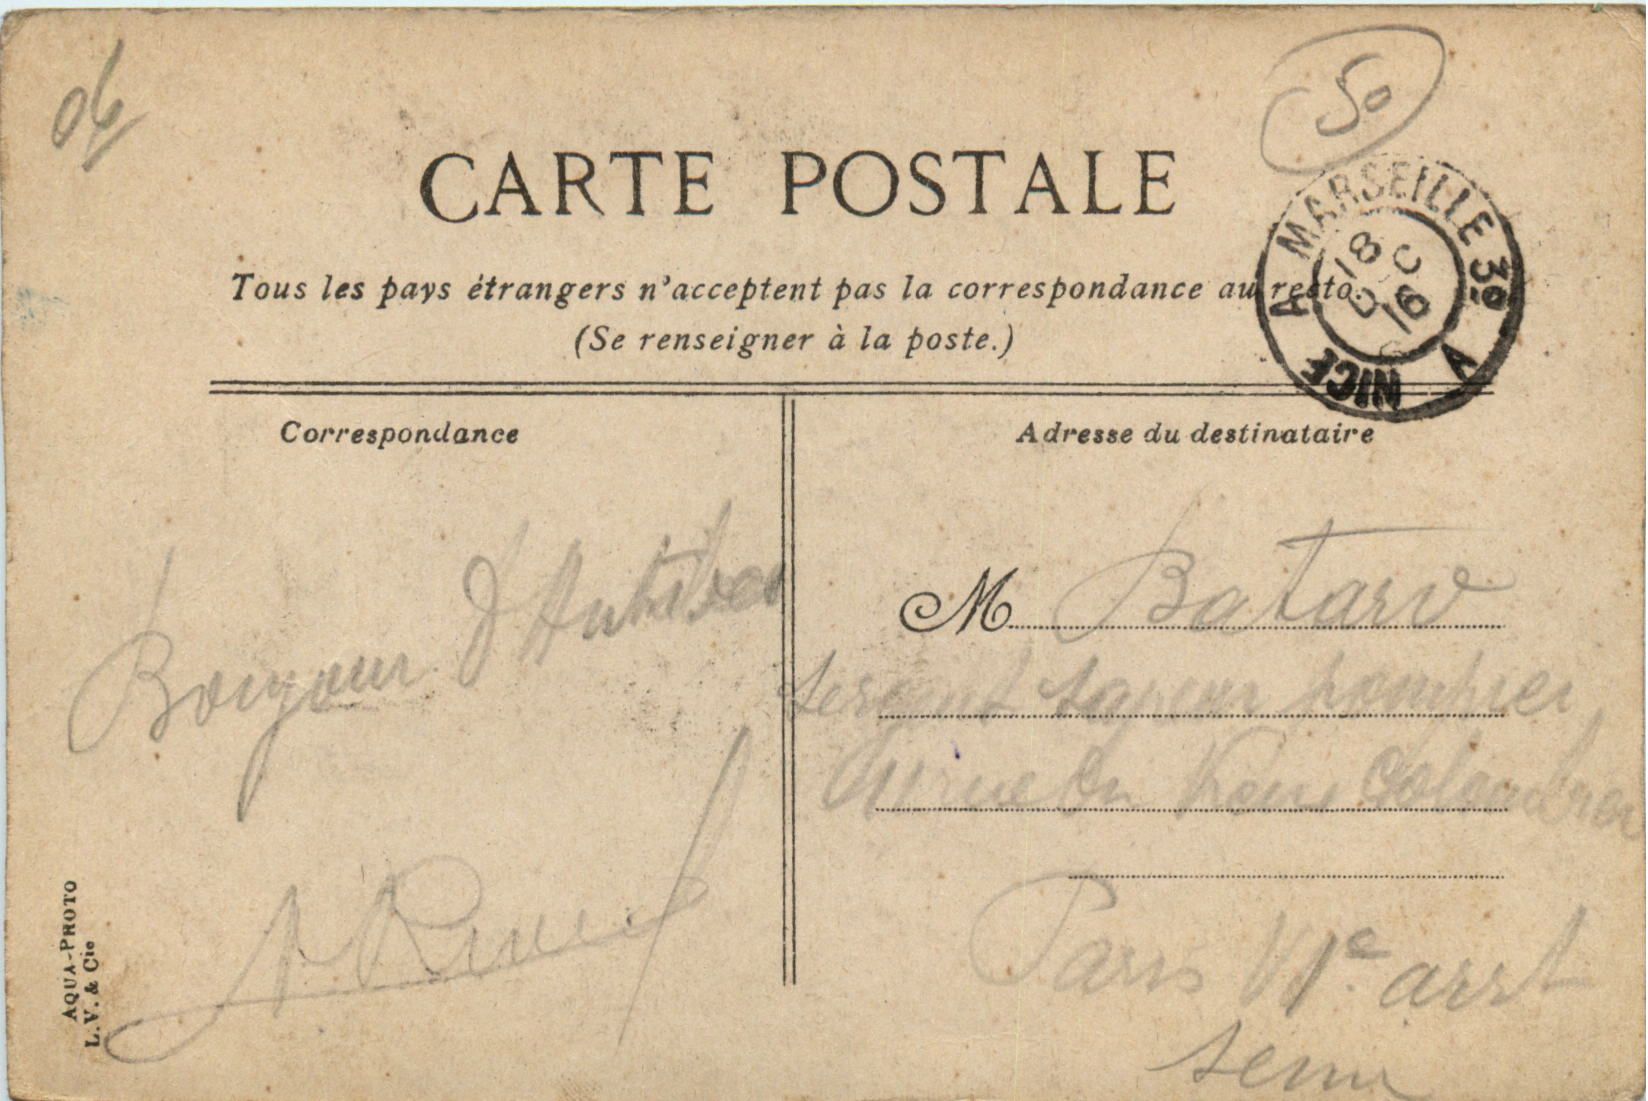 06
50
CARTE POSTALE
Tous les pays étrangers n'acceptent pas la correspondance au recto.
(Se renseigner à la poste.)
MARSEILLE A NICE 3º A
18
DEC
16
Correspondance
Adresse du destinataire
Bonjour d'Antibes
M Batard
sergent sapeur pompier
rue du Vieux Colombier
Paris VIe arrt
Seine
AQUA-PHOTO
L.V. & Cie